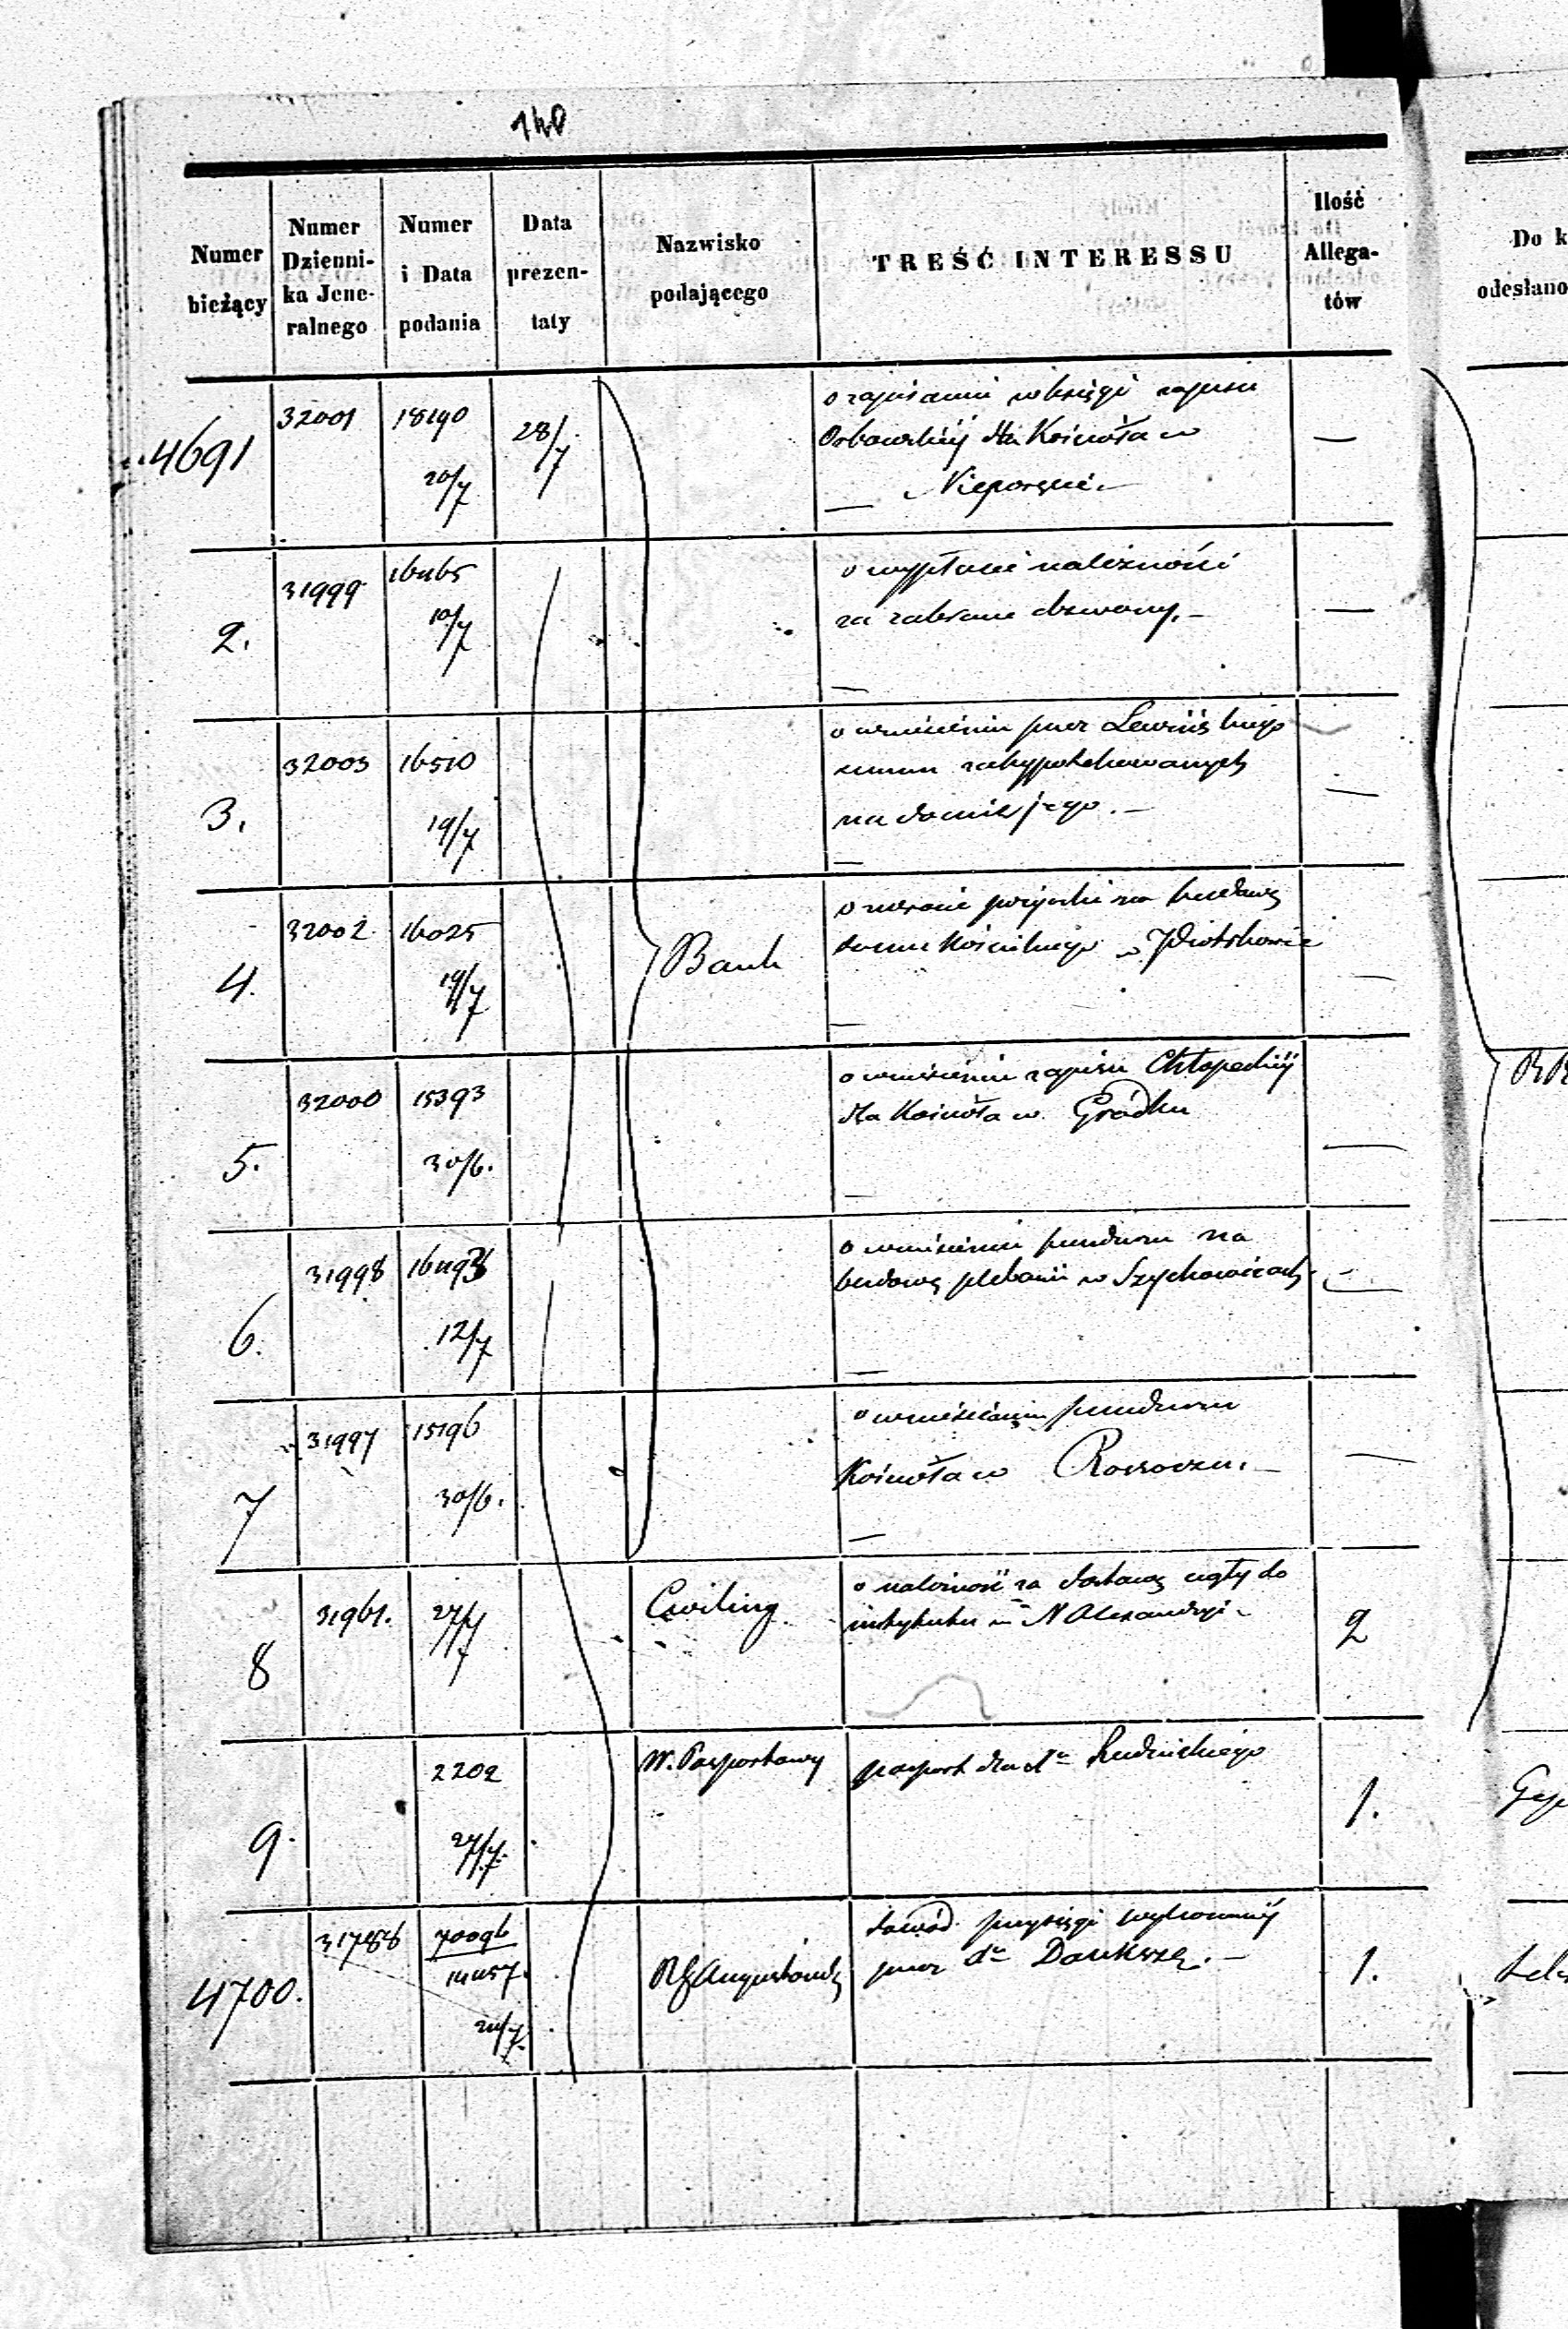 140
Numer bieżący
Numer Dzienni-ka Jene-ralnego
Numer i Data podania
Data prezen-taty
Nazwisko podającego
TREŚĆ INTERESSU
Ilość Allega-tów
Do k
odesłano
4691 32001 18190 20/7 28/7
o zapisaniu w księgi zapisu
dla Kościoła w
Nieporęcie.—
—
2. 31999 10/7
o wypłacie należności
za zabrane dzwony.—
—
3. 32003 16510 19/7
o wniesieniu przez Lewińskiego
summ zahypotekowanych
na domie jego.—
—
4. 32002 16025 19/7 Bank
o zwrocie pożyczki na budowę
domu Kościelnego w Piotrkowie
—
5. 32000 15393 30/6.
o wniesieniu zapisu Chłopeckiej
dla Kościoła w Gródku
—
6. 31998 12/7
o wniesieniu funduszu na
budowę plebanii w Szychowicach
—
7 31997 15196 30/6.
o wniesieniu funduszu
Kościoła w Rossoszu.—
—
8 31961. 27/7 Cwiling
o należność za dostawę cegły do
instytutu w N Alexandryi
2
9. 2202 27/7 W. Pasportowy
pasport dla dr Rudnickiego
1.
4700. 70096 RG Augustowski
dowód przysięgi wykonanej
przez dr Daukszę.—
1.